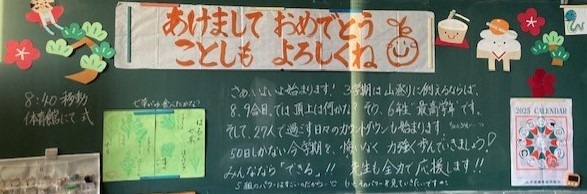 あけまして おめでとう
ことしも よろしくね
8:40 移動
体育館にて 式
さあ、いよいよ始まります! 3学期は山登りに例えるならば、
8、9合目。では頂上は何かな? そう、6年生"最高学年"です。
そして、27人で過ごす日々のカウントダウンも始まります。
50日しかない今学期を、悔いなく 力強く歩んでいきましょう!
みんななら「できる」!! 先生も全力で応援します!!
2025 CALENDAR